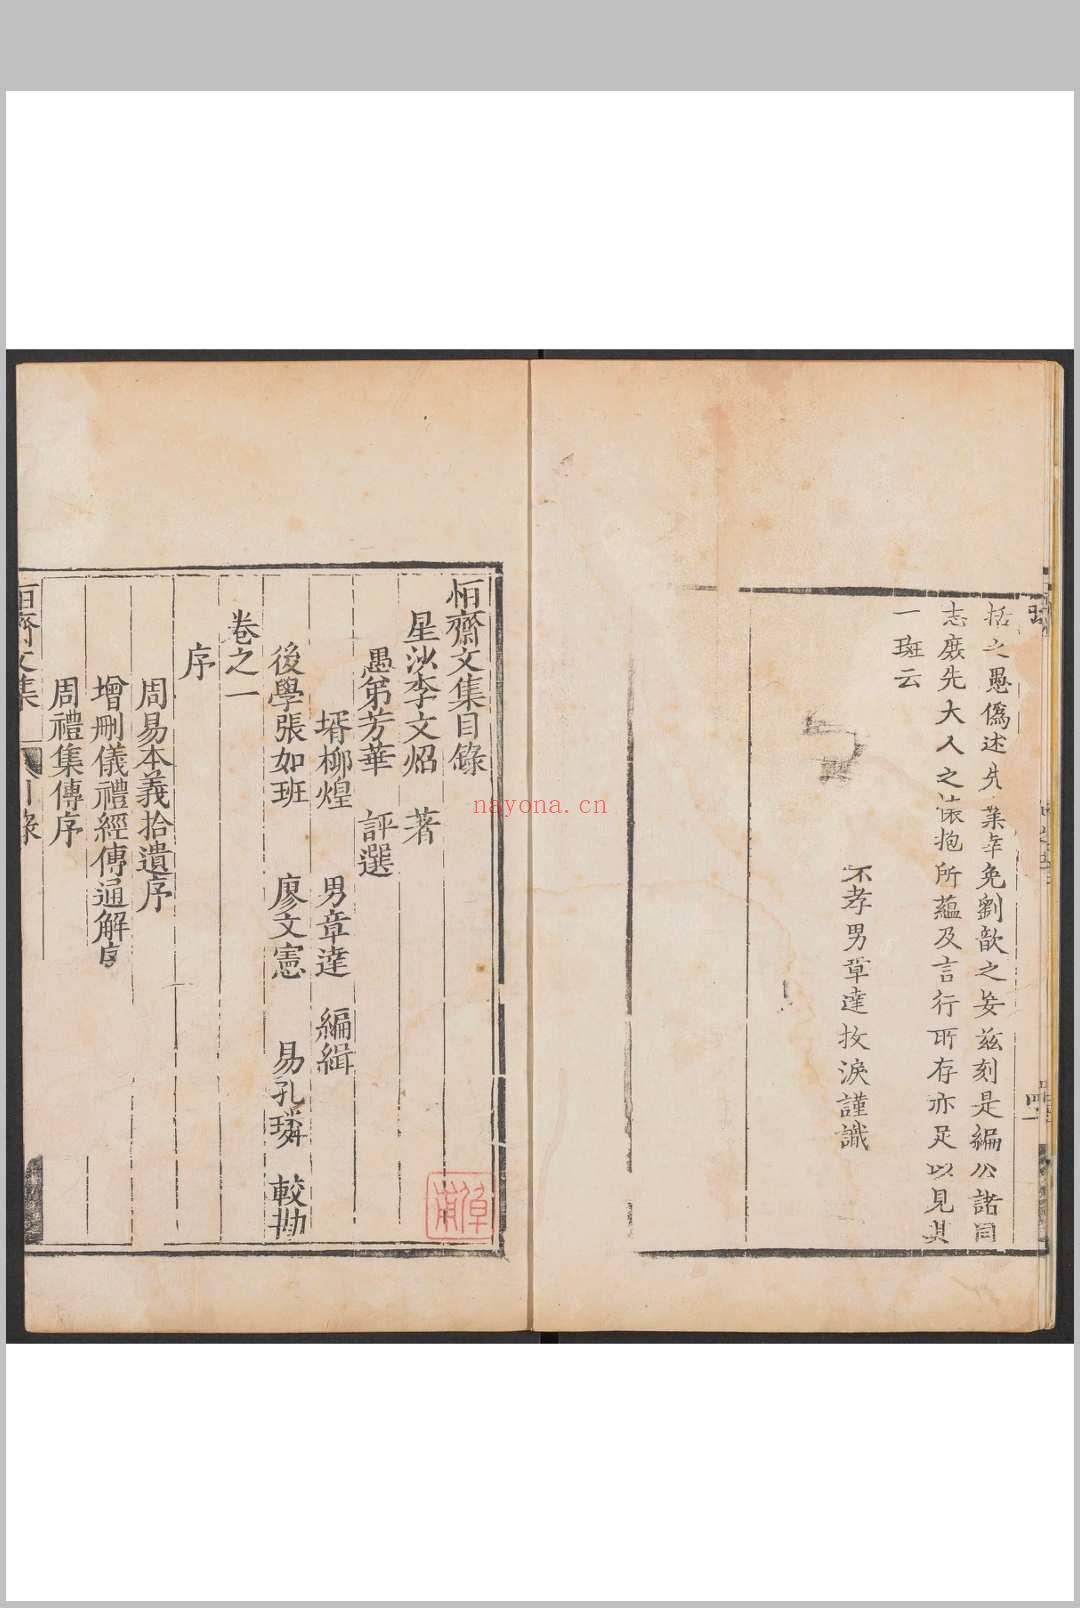 括之愚僞述先業幸免劉歆之妄茲刻是編公諸同
志庶先大人之懐抱所蘊及言行所存亦足以見其
一斑云
不孝男章達抆淚謹識
恒齋文集目錄
星沙李文炤 著
愚弟芳華 評選
壻柳煌 男章達 編緝
後學張如班 廖文憲 易孔璘 較勘
卷之一
序
周易本義拾遺序
增刪儀禮經傳通解序
周禮集傳序
nayona.cn